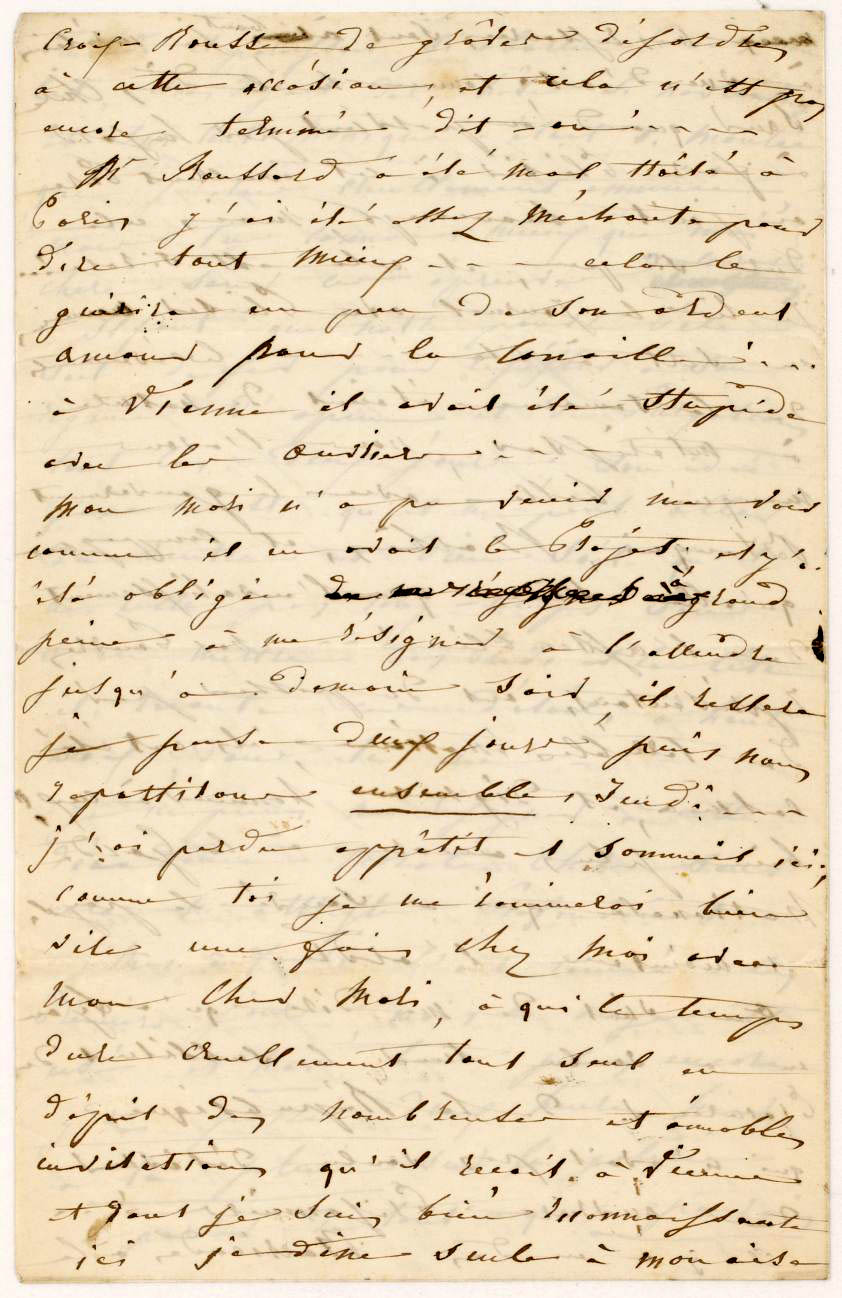 Croix-Rousse de grâves désordres
à cette occâsion, et cela n'est pas
encore terminé dit-on! - - - -
Mr Roussard a été mal traité à
Paris j'ai été assez méchante pour
dire tant mieux - - - cela le
guérira un peu de son ardent
amour pour la Canaille! - - -
à Vienne il avait été stupide
avec les ouvriers! - - - -
mon mari n'a pu venir me voir
comme il en avait le Projet. et j'ai
été obligée à grand
peine à me résigner à l'attendre
jusqu'à demain soir, il restera
je pense deux jours, puis nous
repartirons ensemble, Jeudi - - -
j'ai perdu appêtit et sommeil ici;
comme toi je me ranimerai bien
vite une fois chez moi avec
mon Cher Mari, à qui le temps
dure cruellement tout seul en
dépit des nombreuses et aimables
invitations qu'il recoit à Vienne
et dont je suis bien reconnaissante
ici je dîne seule à mon aise